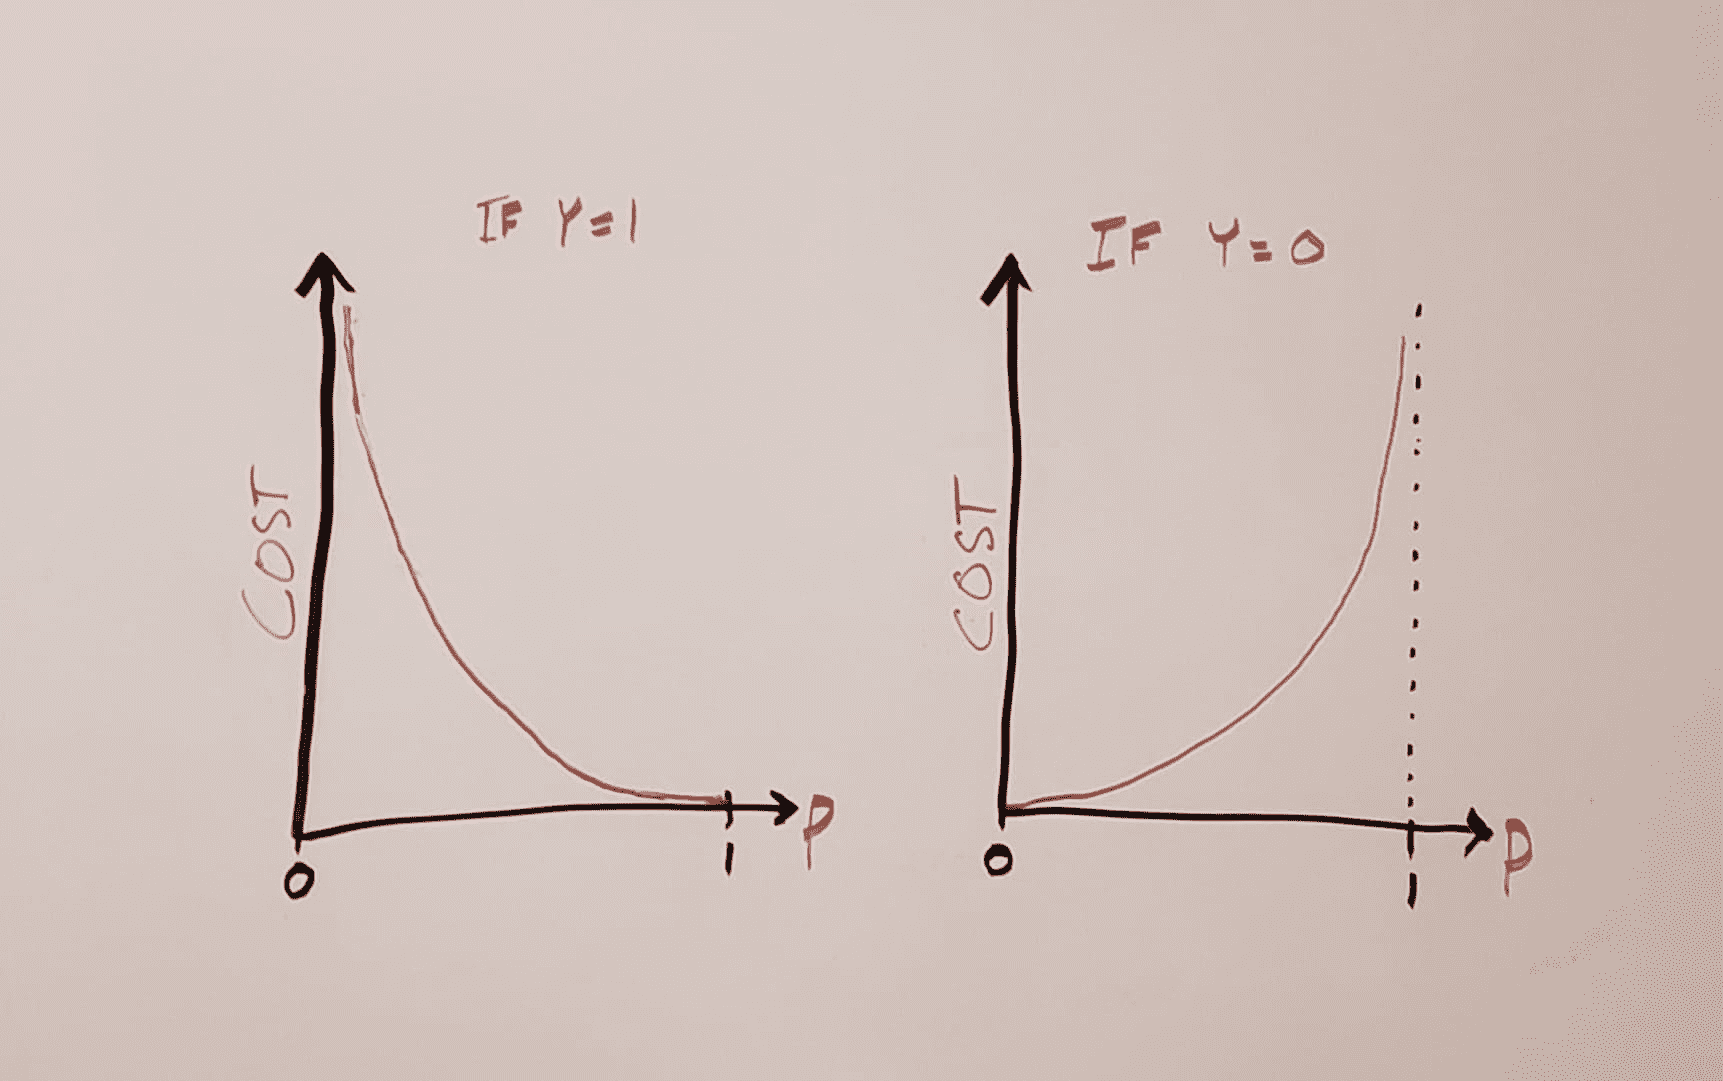 IF Y=1
COST
0
1
P
IF Y=0
COST
0
1
P